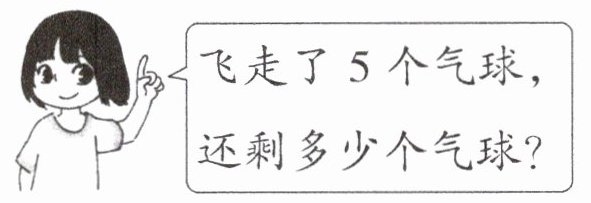 飞走了 5 个气球，
还剩多少个气球？